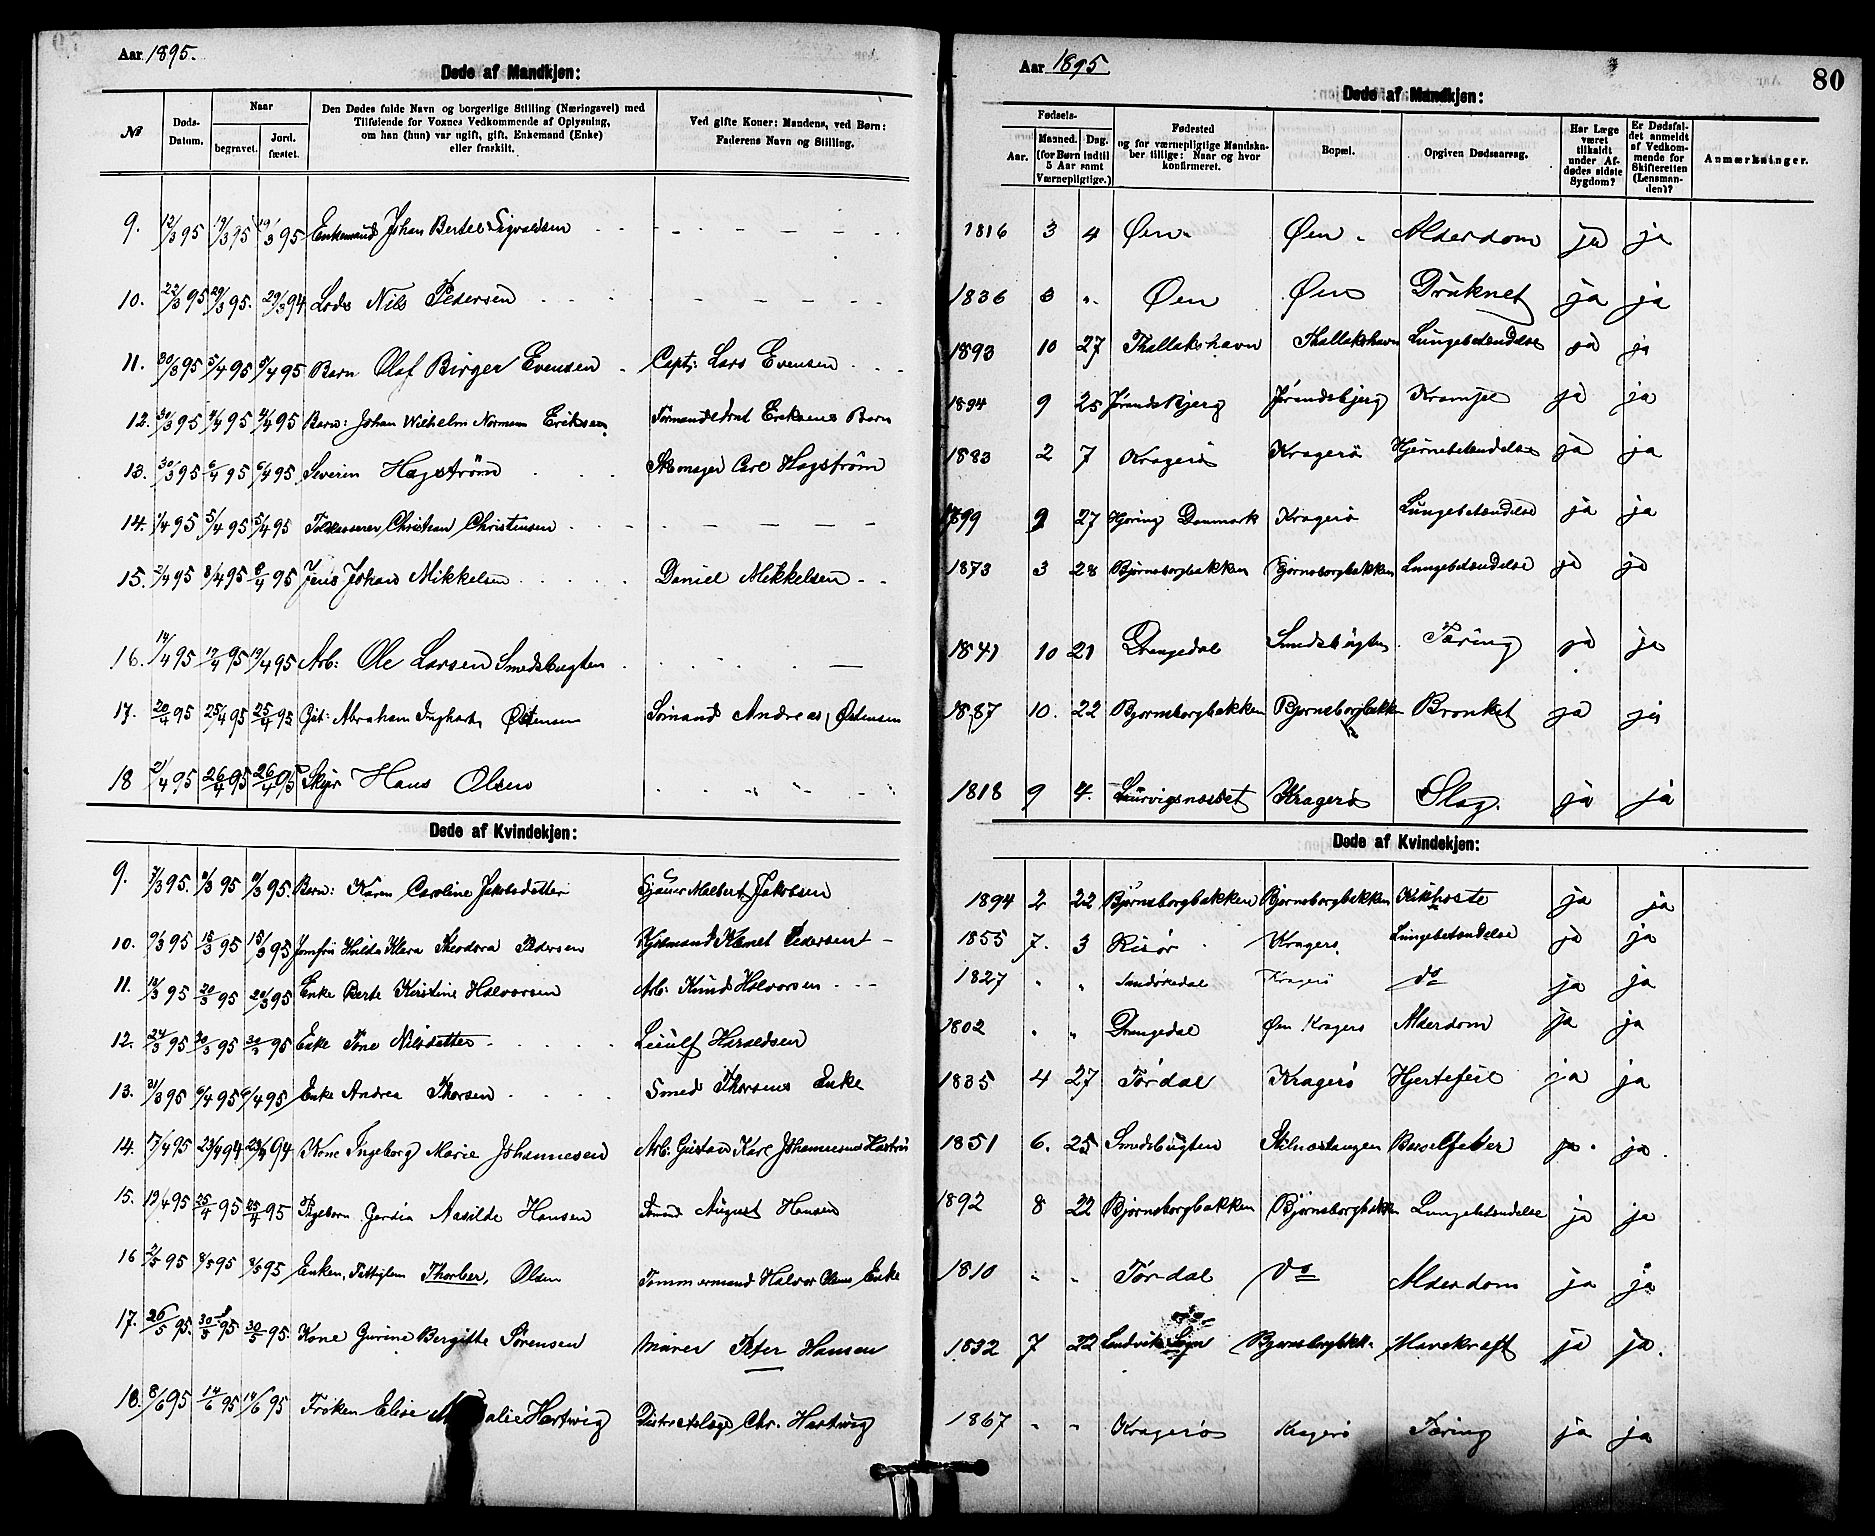 Aar 1895.
Døde af Mandkjøn:
№
Døds-Datum.
Naar
begravet.
Jord-fæstet.
Den Dødes fulde Navn og borgerlige Stilling (Næringsvei) med
Tilføiende for Voxnes Vedkommende af Oplysning,
om han (hun) var ugift, gift, Enkemand (Enke)
eller fraskilt.
Ved gifte Koner: Mandens, ved Børn:
Faderens Navn og Stilling.
9. 12/3 95 19/3 95 19/3 95 Enkemand Johan Bertel Sigvaldsen
10. 22/3 95 29/3 95. 29/3 94 Lods Nils Pedersen
11. 30/3 95 5/4 95 5/4 95 Barn Olaf Birger Evensen Capt: Lars Evensen
12. 31/3 95 4/4 95 4/4 95 Barn: Johan Wilhelm Normann Eriksen Eriksens Barn
13. 30/3 95 6/4 95 6/4 95 Severin Hagstrøm Skomager Carl Hagstrøm
14. 1/4 95 5/4 95 5/4 95 Christian Christensen
15. 2/4 95 8/4 95 8/4 95 Jens Johan Mikkelsen Daniel Mikkelsen
16. 14/4 95 19/4 95 19/4 95 Arb: Ole Larsen Smedsbugten
17. 20/4 95 25/4 95 25/4 95 Gut: Abraham Østensen Sømand Andreas Østensen
18 21/4 95 26/4 95 26/4 95 Hans Olsen
Døde af Kvindekjøn:
9. 7/3 95. 9/3 95 9/3 95. Barn: Karen Caroline Jakobsdatter Jakobsen
10. 9/3 95 15/3 95 15/3 95 Jomfru Hulda Klara Theodora Pedersen Pedersen
11. 12/3 95 20/3 95 20/3 95 Enke Berte Kirstine Halvorsen Arb: Knud Halvorsen
12. 24/3 95 30/3 95 30/3 95 Enke Tone Nilsdatter Leiulf Haraldsen
13. 31/3 95 6/4 95 6/4 95 Enke Andrea Thorsen Smed Thorsens Enke
14. 17/4 95 23/4 94 23/4 94 Kone Ingeborg Marie Johannesen Arb: Gustav Karl Johannesens Hustru
15. 19/4 95 25/4 95 25/4 95 Pigebarn Nasilde Hansen Sømand August Hansen
16 2/5 95 8/5 95 8/5 95 Enken, Fattiglem Thorber, Olsen Tømmermand Halvor Olsens Enke
17. 26/5 95. 30/5 95 30/5 95. Kone Gurine Bergitte Sørensen Murer Peter Hansen
18. 8/6 95 14/6 95 14/6 95 Frøken Elise Hartwig Distrctslæge Chr. Hartwig
Aar 1895
80
Døde af Mandkjøn:
Fødsels-
Aar.
Maaned. Dag.
(for Børn indtil
5 Aar samt
Værnepligtige.)
Fødested
og for værnepligtige Mandska-
ber tillige: Naar og hvor
konfirmeret.
Bopæl.
Opgiven Dødsaarsag.
Har Læge
været
tilkaldt
under Af-
dødes sidste
Sygdom?
Er Dødsfal-
det anmeldt
af Vedkom-
mende for
Skifteretten
(Lensman-
den)?
Anmærkninger.
1816 3 4 Øen Øen Alderdom ja ja
1836 Øen Øen Druknet ja ja
1893 10 27 Thallakshavn Thallakshavn Lungebetændelse ja ja
1894 9 25 Jørandsbjerg Jørandsbjerg Krampe ja ja
1883 2 7 Kragerø Kragerø Hjernebetændelse ja ja
1899 9 27 Hjøring Danmark Kragerø Lungebetændelse ja ja
1873 3 28 Bjørnsborgbakken Bjørnsborgbakken Lungebetændelse ja ja
1841 10 21 Drangedal Smedsbugten Tæring ja ja
1887 10. 22 Bjørnsborgbakken Bjørnsborgbakken Bronket ja ja
1818 9 4. Laurvigsnæsset Kragerø Slag. ja ja
Døde af Kvindekjøn:
1894 2 22 Bjørnsborgbakken Bjørnsborgbakken Kikhoste ja ja
1855 7. 3 Risør Kragerø Lungebetændelse ja ja
1827 " " Sandøkedal Kragerø do ja ja
1802 " " Drangedal Øen Kragerø Alderdom ja ja
1835 4 27 Tørdal Kragerø Hjertefeil ja ja
1851 6. 25 Smedsbugten Stilnestangen Barselfeber ja ja
1892 8 22 Bjørnsborgbakken Bjørnsborgbakken Lungebetændelse ja ja
1810 " " Tørdal do Alderdom ja ja
1832 7 22 Landvik Sogn Bjørnsborgbakk. Mavekræft ja ja.
1867 " " Kragerø Kragerø Tæring ja ja